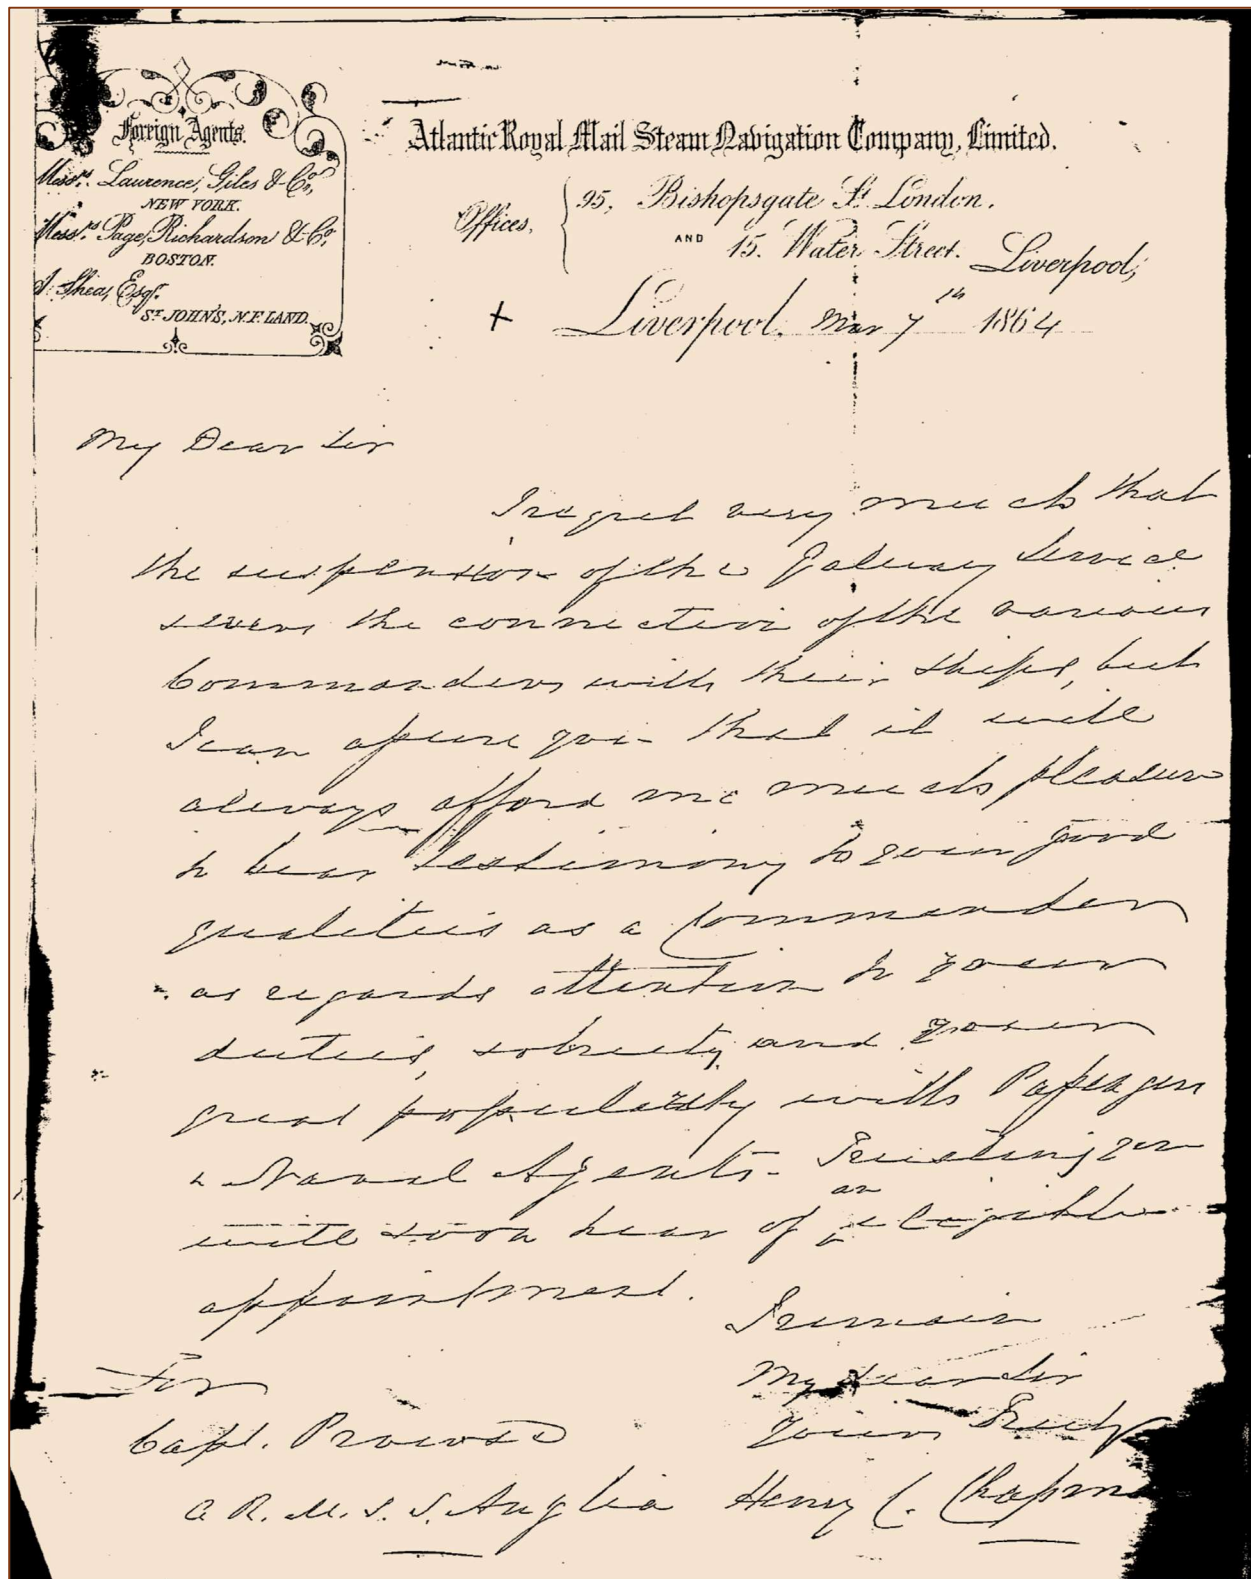 Foreign Agents.
Messrs. Laurence, Giles & Co,
NEW YORK.
Messrs. Page, Richardson & Co,
BOSTON.
Shea, Esqr.
ST. JOHN'S, N.F.LAND.
Atlantic Royal Mail Steam Navigation Company, Limited.
Offices, 95, Bishopsgate St. London.
AND 15. Water Street. Liverpool,
Liverpool, Mar 7th 1864
My Dear Sir
I regret very much that
the suspension of the Galway Service
severs the connection of the various
Commanders with their Ships, but
I can assure you that it will
always afford me much pleasure
to bear testimony to your good
qualities as a Commander
as regards attention to your
duties, sobriety and your
great popularity with Passengers
Naval Agents. Trusting you
will soon hear of an eligible
appointment.
I remain
My dear Sir
Yours Truly
Henry C. Chapman
For
Capt. Prowse
A. R. M. S. S. Anglia